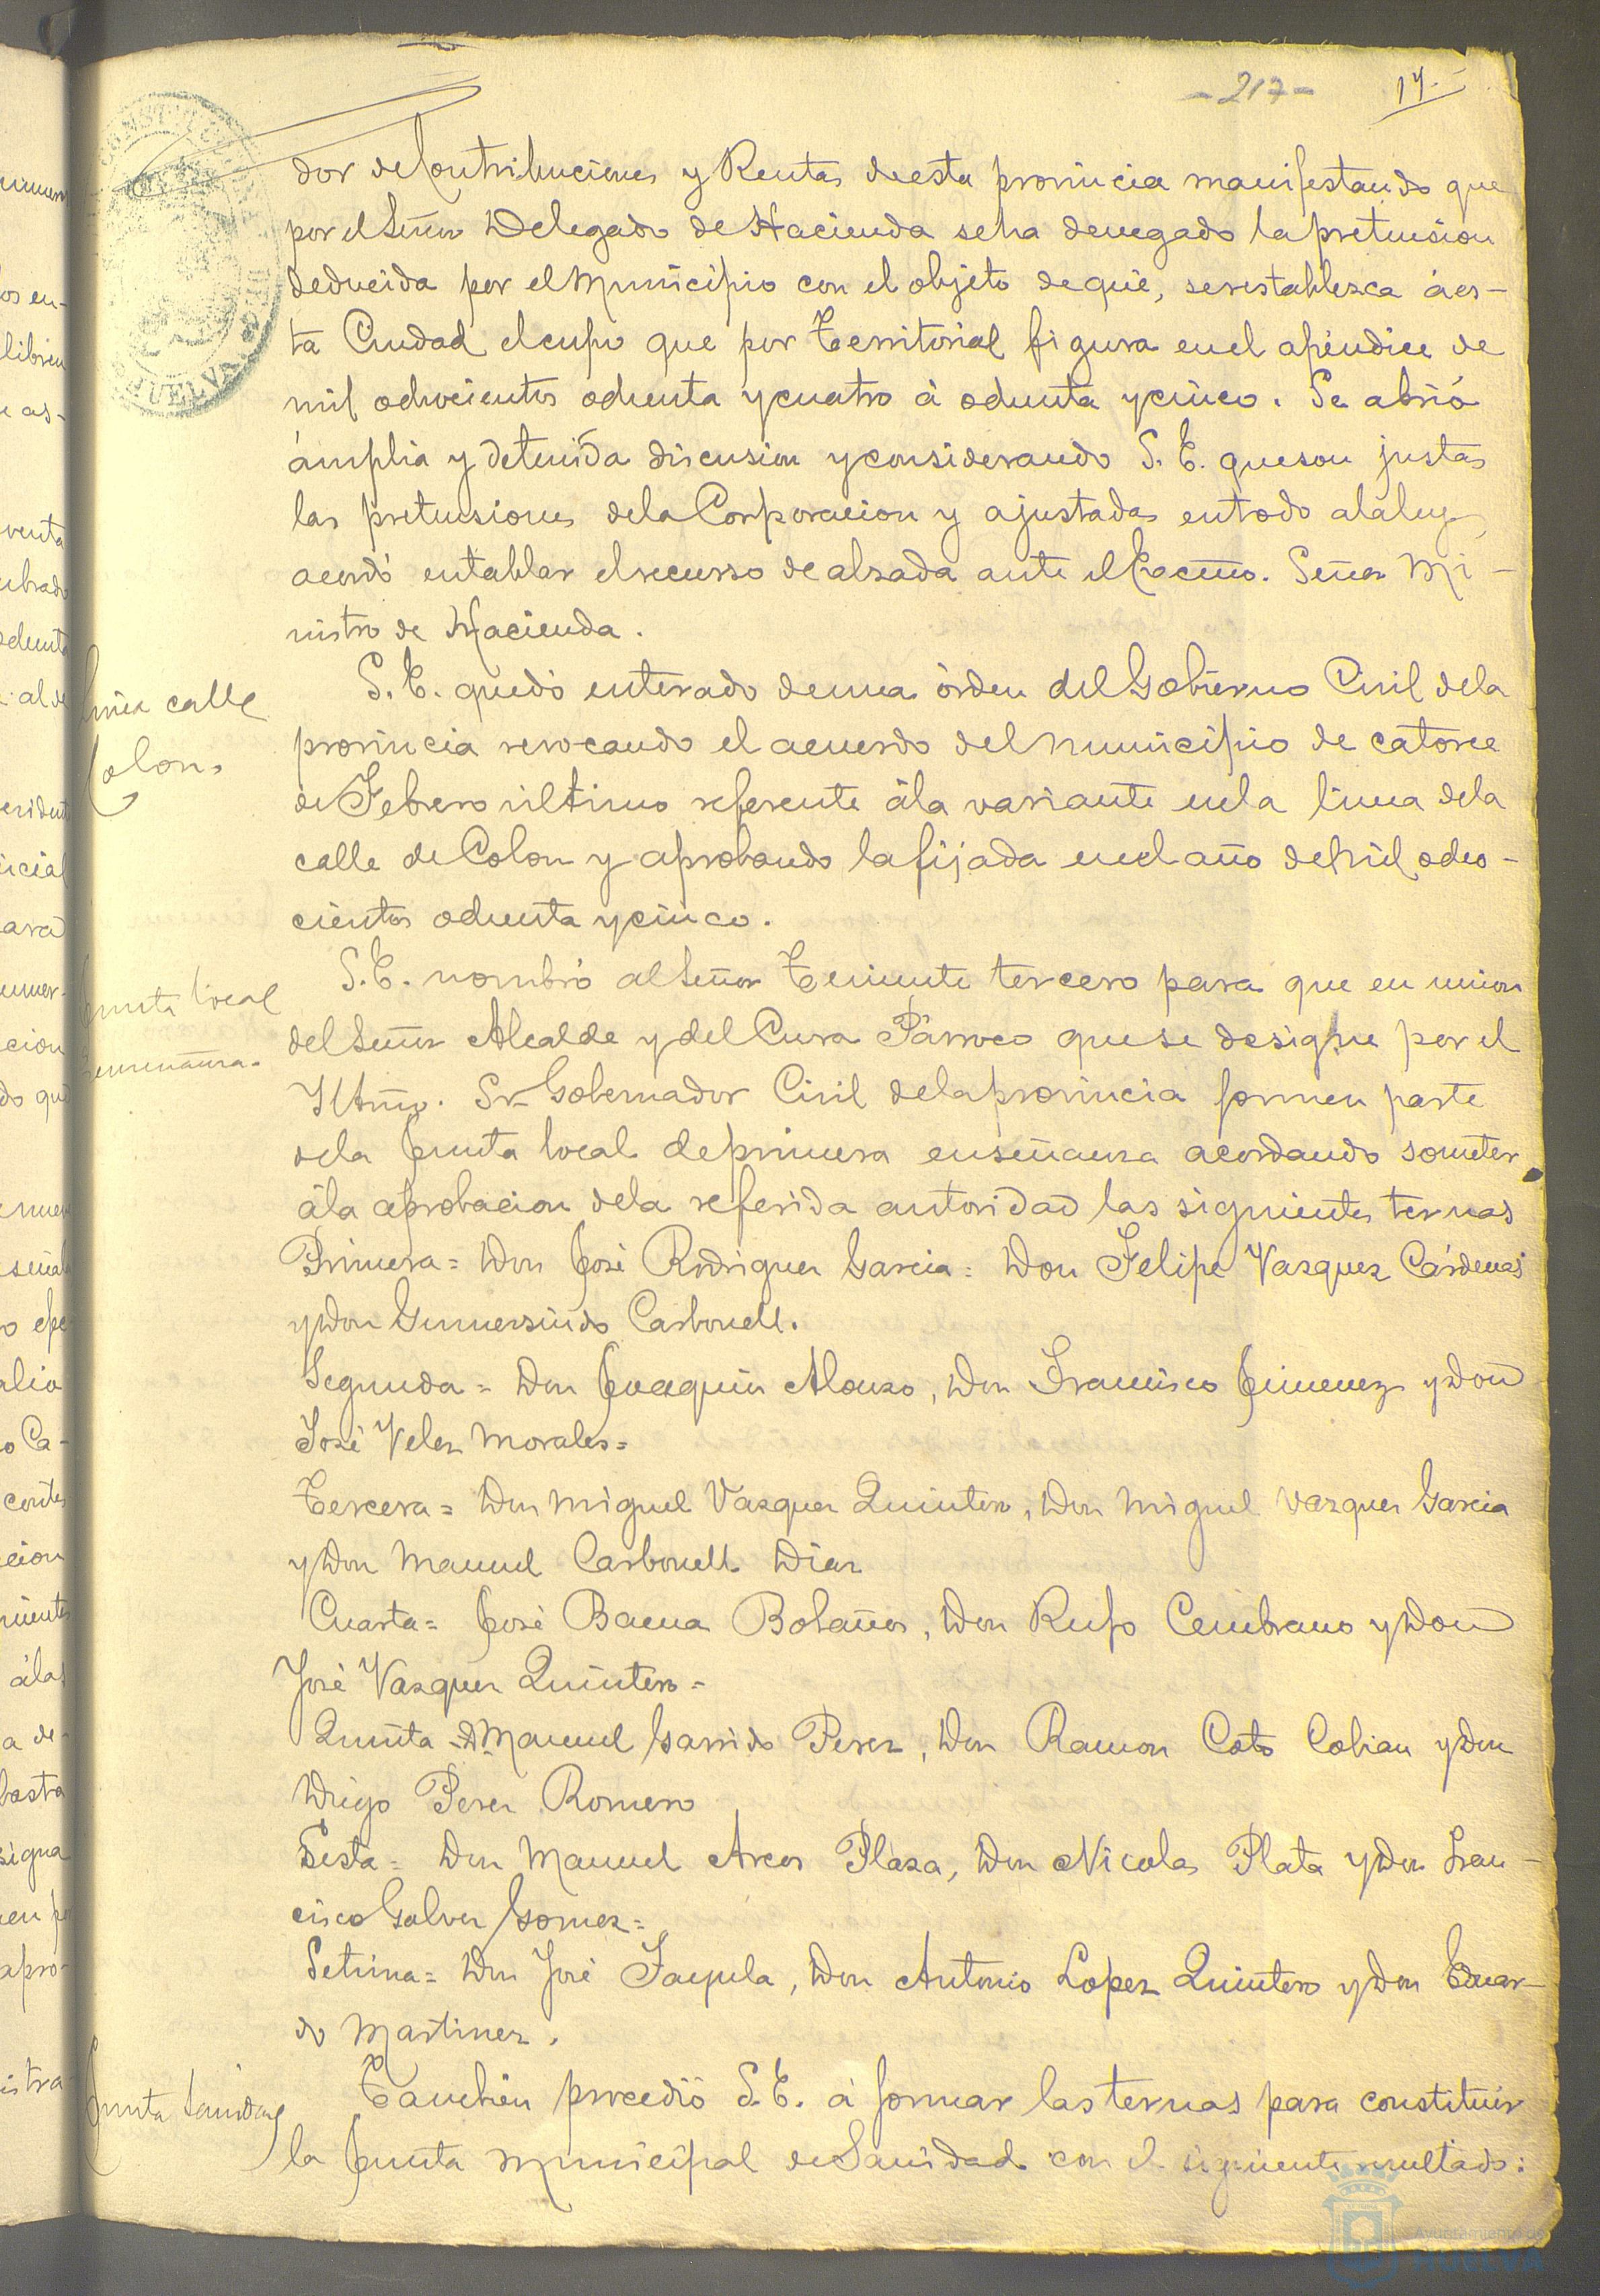 -217- 17.
dor de Contribuciones y Rentas de esta provincia manifestando que
por el Señor Delegado de Hacienda se ha denegado la pretension
deducida por el Municipio con el objeto de que, se restablezca á es-
ta Ciudad el cupo que por Territorial figura en el apéndice de
mil ochocientos ochenta y cuatro á ochenta y cinco. Se abrió
ámplia y detenida discusion y considerando S. E. que son justas
las pretensiones de la Corporacion y ajustadas en todo a la ley
acordó entablar el recurso de alzada ante el Excmo. Señor Mi-
nistro de Hacienda.
Linea calle
Colon.
S. E. quedó enterado de una órden del Gobierno Civil de la
provincia revocando el acuerdo del municipio de catorce
de Febrero último referente á la variante en la linea de la
calle de Colon y aprobando la fijada en el año de mil ocho-
cientos ochenta y cinco.
Junta local
enseñanza.
S. E. nombró al Señor Teniente tercero para que en union
del Señor Alcalde y del Cura Párroco que se designe por el
Iltmo. Sr Gobernador Civil de la provincia formen parte
de la Junta local de primera enseñanza acordando someter
á la aprobacion de la referida autoridad las siguientes ternas
Primera = Don José Rodriguez Garcia = Don Felipe Vazquez Cárdenas
y Don Gumersindo Carbonell.
Segunda = Don Joaquin Alonso, Don Francisco Jimenez y Don
José Velez Morales =
Tercera = Don Miguel Vazquez Quintero, Don Miguel Vazquez Garcia
y Don Manuel Carbonell Diaz
Cuarta = José Baena Bolaños, Don Rufo Cembrano y Don
José Vazquez Quintero =
Quinta = D. Manuel Garrido Perez, Don Ramon Coto Cobian y Don
Diego Perez Romero
Sesta = Don Manuel Arcos Plaza, Don Nicolas Plata y Don Fran-
cisco Galvez Gomez =
Setima = Don José Fayula, Don Antonio Lopez Quintero y Don Eduar-
do Martinez.
Junta Sanidad
Tambien procedió S. E. á formar las ternas para constituir
la Junta Municipal de Sanidad con el siguiente resultado:
Ayuntamiento de
HUELVA